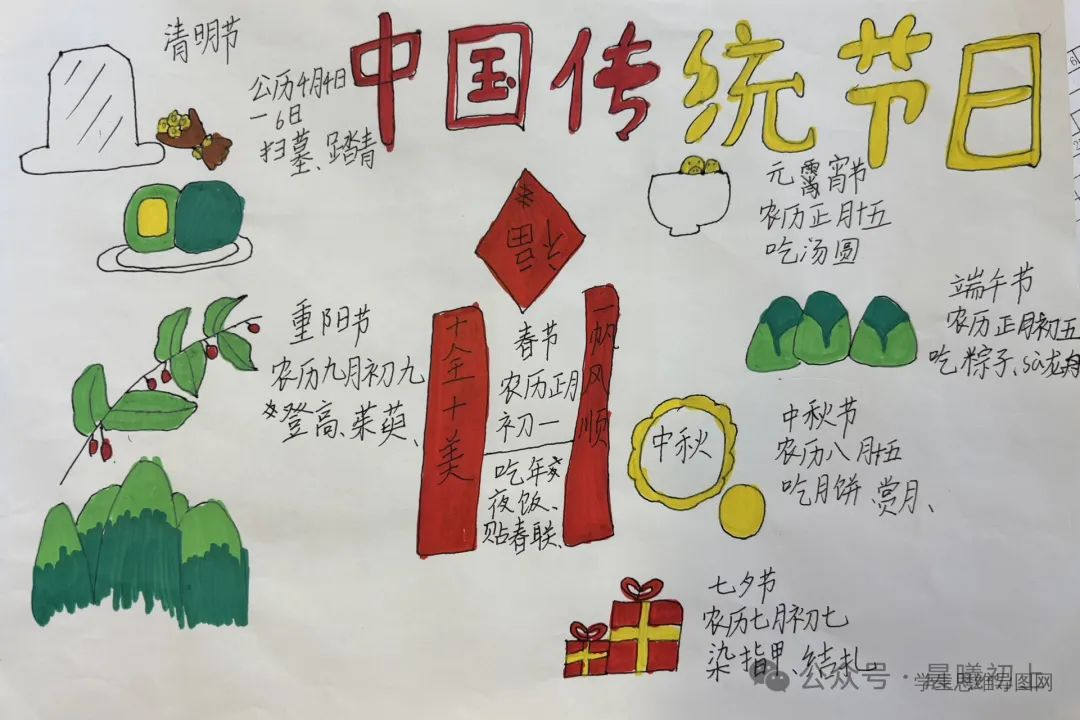 中国传统节日
清明节
公历4月4日
一6日
扫墓、踏青
元宵节
农历正月十五
吃汤圆
福
端午节
农历正月初五
吃粽子、sài龙舟
重阳节
农历九月初九
登高、茱萸、
十全十美
春节
农历正月
初一
吃年
夜饭、
贴春联、
一帆风顺
中秋
中秋节
农历八月十五
吃月饼、赏月、
七夕节
农历七月初七
染指甲、结扎
公众号·晨曦初上
学生思维导图网